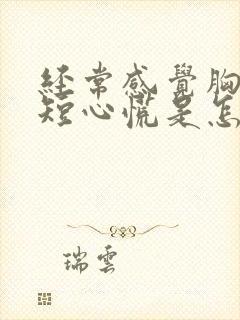 經常感覺胸
短心慌是怎
瑞雲